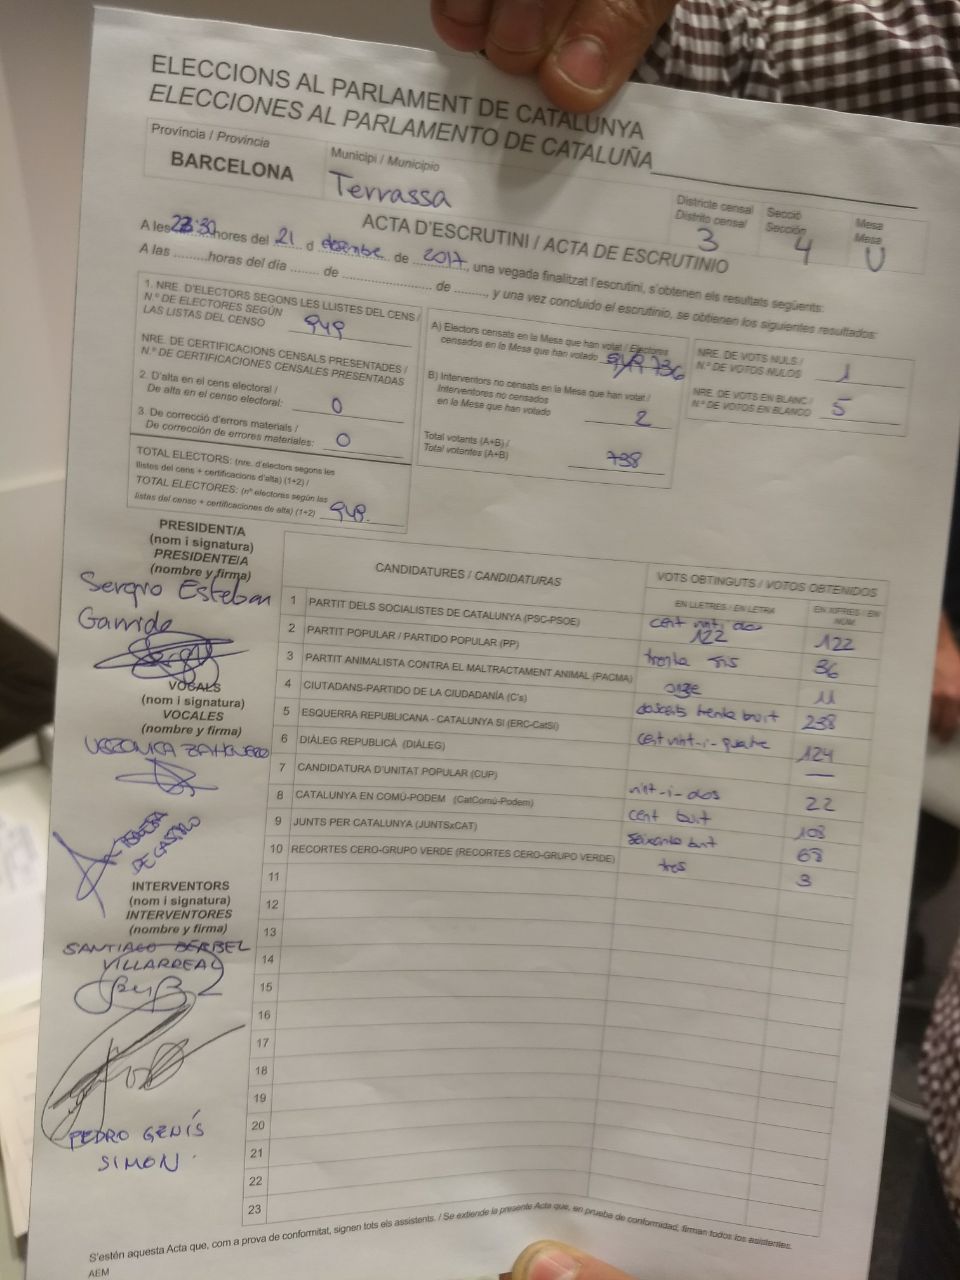 ELECCIONS AL PARLAMENT DE CATALUNYA
ELECCIONES AL PARLAMENTO DE CATALUÑA
Província / Provincia
BARCELONA
Municipi / Municipio
Terrassa
Districte censal
Distrito censal
3
Secció
Sección
4
Mesa
Mesa
U
ACTA D'ESCRUTINI / ACTA DE ESCRUTINIO
A les 23:30 hores del 21 d desembre de 2017, una vegada finalitzat l'escrutini, s'obtenen els resultats següents:
A las ......... horas del día ....... de ........................ de ........., y una vez concluido el escrutinio, se obtienen los siguientes resultados:
1. NRE. D'ELECTORS SEGONS LES LLISTES DEL CENS /
N.º DE ELECTORES SEGÚN
LAS LISTAS DEL CENSO 949
NRE. DE CERTIFICACIONS CENSALS PRESENTADES /
N.º DE CERTIFICACIONES CENSALES PRESENTADAS
2. D'alta en el cens electoral /
De alta en el censo electoral: 0
3. De correcció d'errors materials /
De corrección de errores materiales: 0
TOTAL ELECTORS: (nre. d'electors segons les
llistes del cens + certificacions d'alta) (1+2) /
TOTAL ELECTORES: (nº electores según las
listas del censo + certificaciones de alta) (1+2) 949.
A) Electors censats en la Mesa que han votat / Electores
censados en la Mesa que han votado 736
B) Interventors no censats en la Mesa que han votat /
Interventores no censados
en la Mesa que han votado 2
Total votants (A+B) /
Total votantes (A+B) 738
NRE. DE VOTS NULS /
N.º DE VOTOS NULOS 1
NRE. DE VOTS EN BLANC /
N.º DE VOTOS EN BLANCO 5
PRESIDENT/A
(nom i signatura)
PRESIDENTE/A
(nombre y firma)
Sergio Esteban
Garrido
VOCALS
(nom i signatura)
VOCALES
(nombre y firma)
VERONICA ZAHONERO
DE CASTRO
INTERVENTORS
(nom i signatura)
INTERVENTORES
(nombre y firma)
SANTIAGO BERBEL
VILLARREAL
PEDRO GENÍS
SIMON
CANDIDATURES / CANDIDATURAS
VOTS OBTINGUTS / VOTOS OBTENIDOS
EN LLETRES / EN LETRA
EN XIFRES / EN NÚM.
1 PARTIT DELS SOCIALISTES DE CATALUNYA (PSC-PSOE) cent vint i dos 122 122
2 PARTIT POPULAR / PARTIDO POPULAR (PP) trenta sis 36
3 PARTIT ANIMALISTA CONTRA EL MALTRACTAMENT ANIMAL (PACMA) onze 11
4 CIUTADANS-PARTIDO DE LA CIUDADANÍA (C's) doscents trenta buit 238
5 ESQUERRA REPUBLICANA - CATALUNYA SÍ (ERC-CatSí) cent vint-i-quatre 124
6 DIÀLEG REPUBLICÀ (DIÀLEG) —
7 CANDIDATURA D'UNITAT POPULAR (CUP) vint-i-dos 22
8 CATALUNYA EN COMÚ-PODEM (CatComú-Podem) cent buit 108
9 JUNTS PER CATALUNYA (JUNTSxCAT) seixanta buit 68
10 RECORTES CERO-GRUPO VERDE (RECORTES CERO-GRUPO VERDE) tres 3
11
12
13
14
15
16
17
18
19
20
21
22
23
S'estén aquesta Acta que, com a prova de conformitat, signen tots els assistents. / Se extiende la presente Acta que, en prueba de conformidad, firman todos los asistentes.
AEM